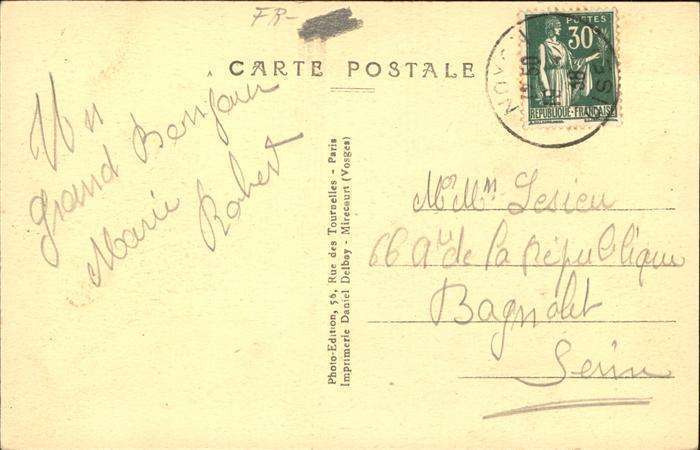 FR-
CARTE POSTALE
Un
grand Bonjour
Marie
Robert
Photo-Edition, 56, Rue des Tournelles - Paris
Imprimerie Daniel Delboy - Mirecourt (Vosges)
POSTES
30
REPUBLIQUE-FRANÇAISE
NOYON
Mr Mme Lesieu
66 Au de la République
Bagnolet
Seine